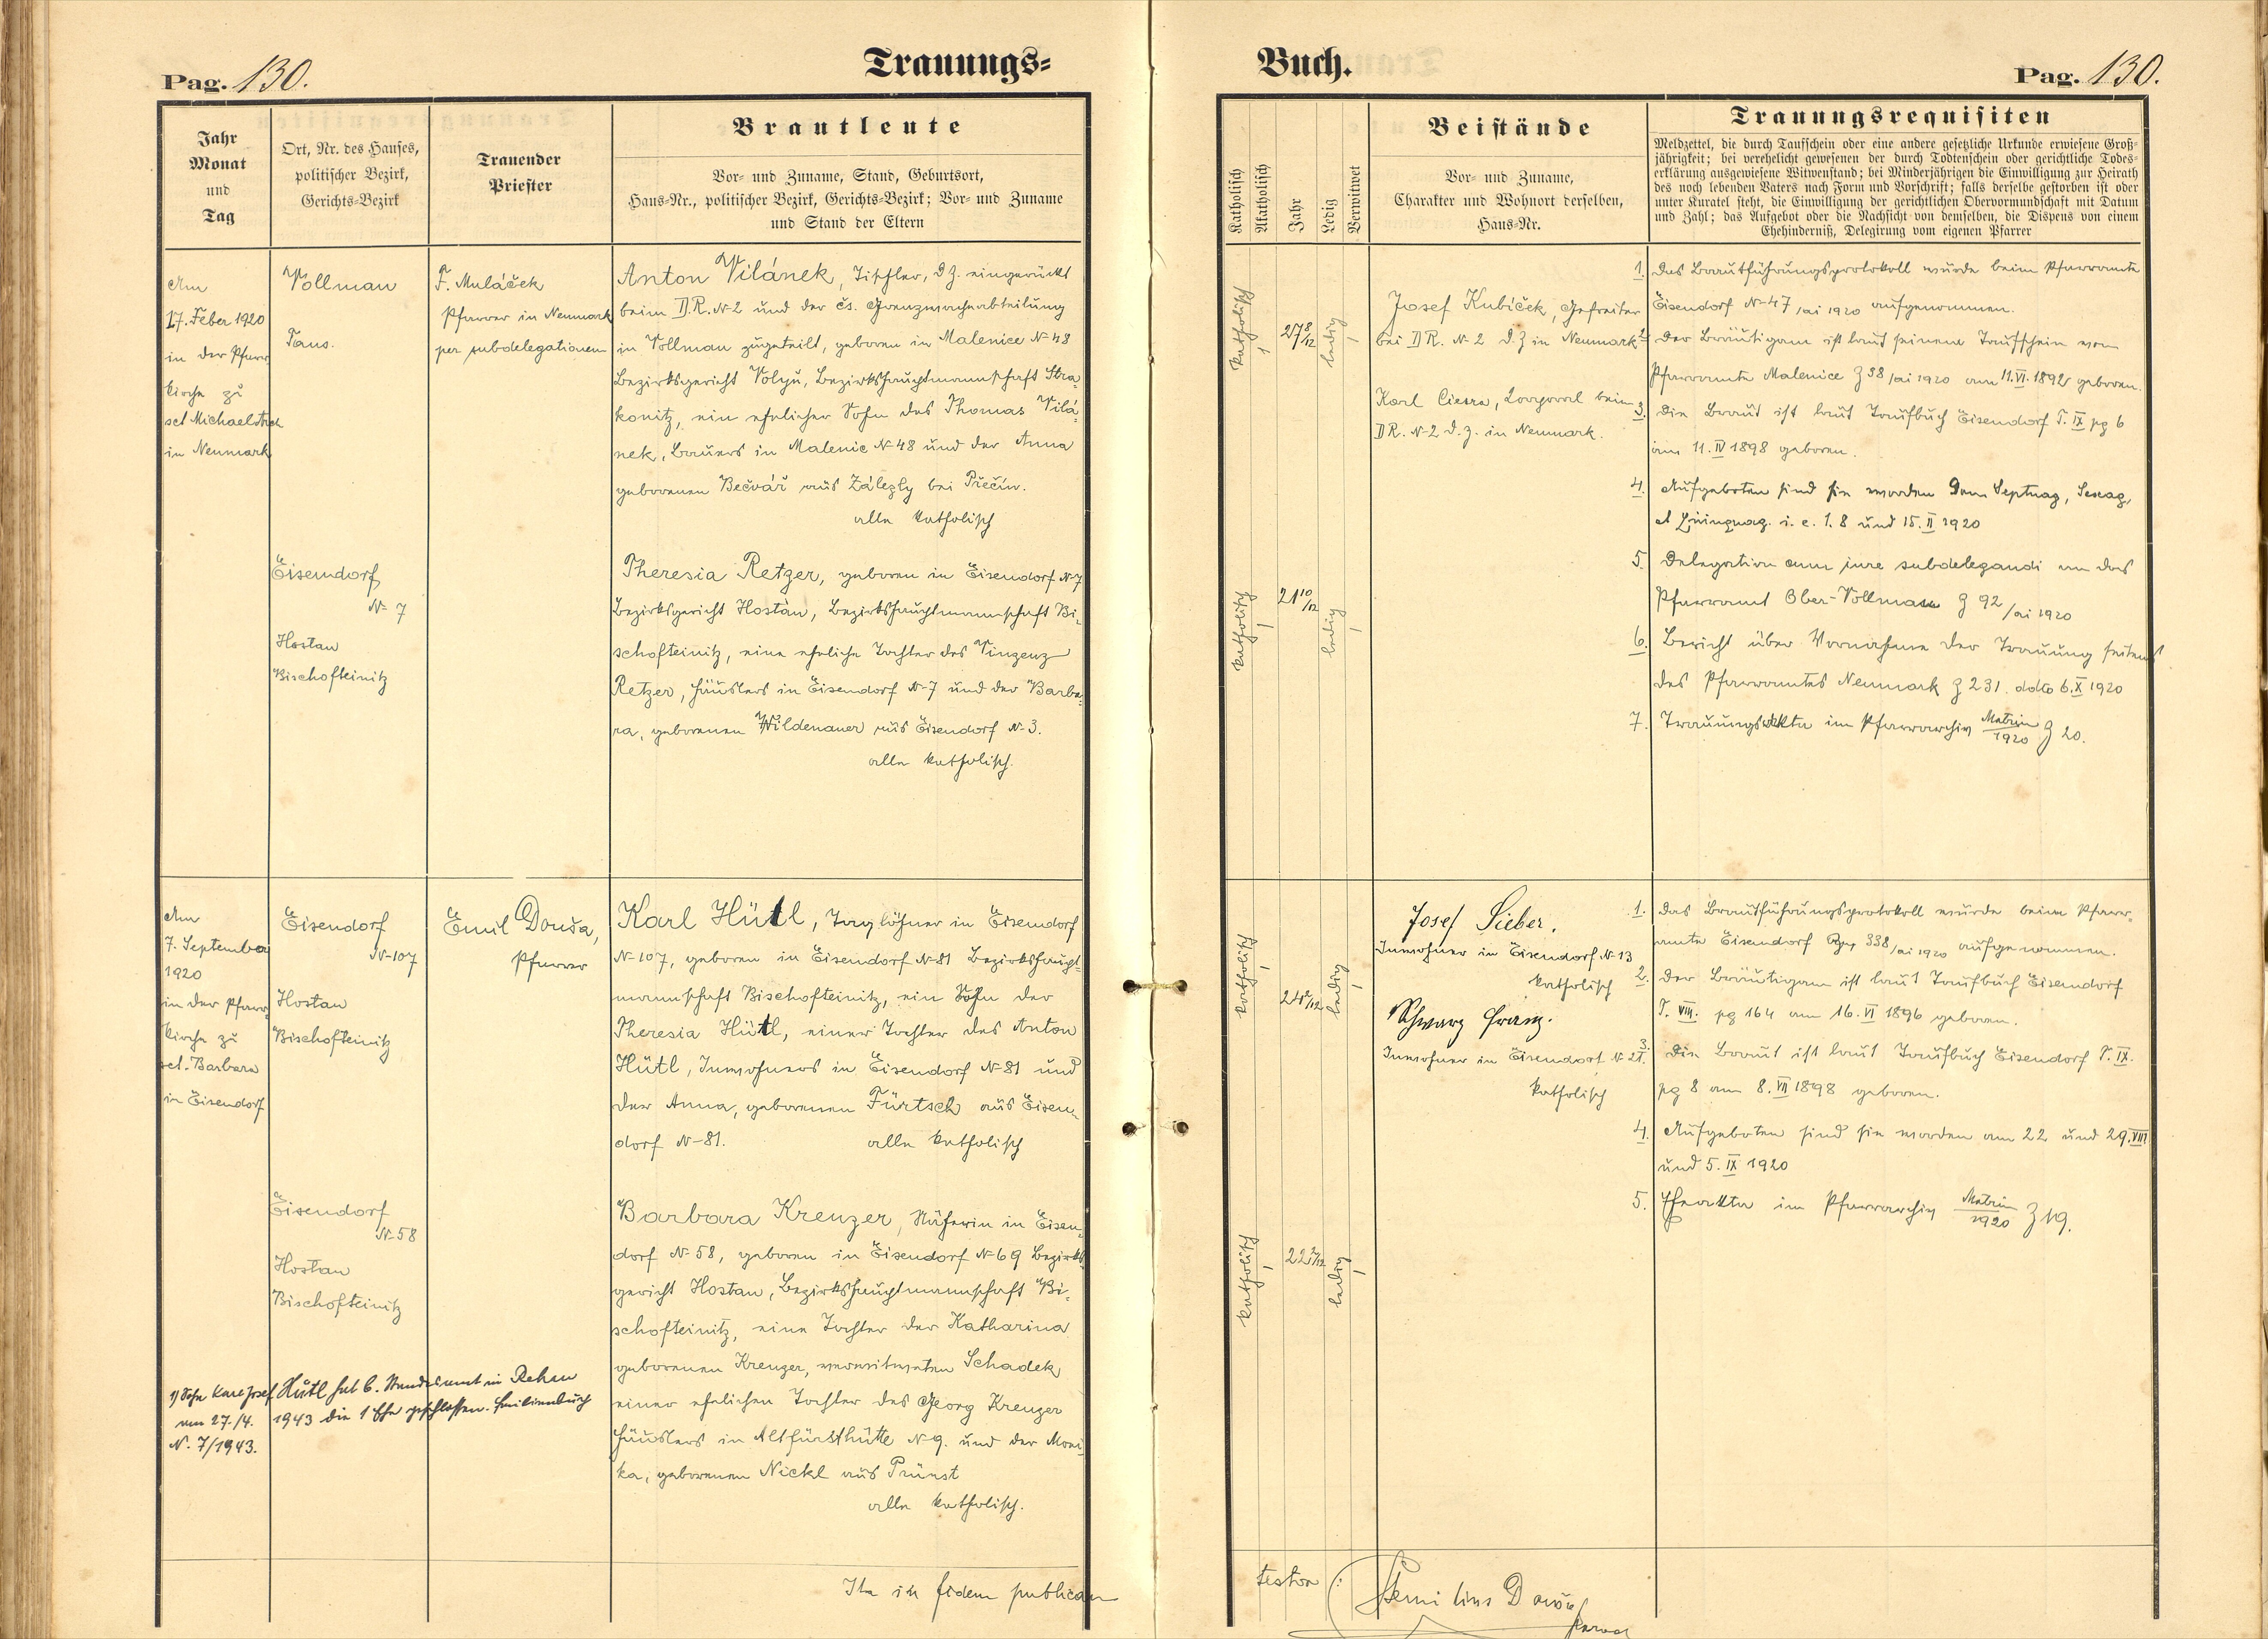 Trauungs-
Pag. 130.
Jahr
Monat
und
Tag
Ort, Nr. des Hauses,
politischer Bezirk,
Gerichts-Bezirk
Trauender
Priester
Brautleute
Vor- und Zuname, Stand, Geburtsort,
Haus-Nr., politischer Bezirk, Gerichts-Bezirk; Vor- und Zuname
und Stand der Eltern
Am
17. Feber 1920
in der Pfarr-
kirche zu
sct Michael
in Neumark
Vollman
Taus.
F. Muláček
Pfarrer in Neumark
per subdelegationem
Anton Vilánek, Tischler, d. Z. eingerückt
beim D.R. N-2 und der čs. Grenzwachabteilung
in Vollman zugeteilt, geboren in Malenice N-48
Bezirksgericht Volyň, Bezirkshauptmannschaft Stra-
konitz, ein ehelicher Sohn des Thomas Vilá-
nek, Bauers in Malenic N-48 und der Anna
geborenen Bečvář aus Zálezly bei Přečín.
alle katholisch
Eisendorf
N- 7
Hostau
Bischofteinitz
Theresia Retzer, geboren in Eisendorf N-7
Bezirksgericht Hostau, Bezirkshauptmannschaft Bi-
schofteinitz, eine eheliche Tochter des Vinzenz
Retzer, Häuslers in Eisendorf N-7 und der Barba-
ra, geborenen Wildenauer aus Eisendorf N-3.
alle katholisch.
Am
7. September
1920
in der Pfarr-
kirche zu
sct. Barbara
in Eisendorf
Eisendorf
N-107
Hostau
Bischofteinitz
Emil Douša,
Pfarrer
Karl Hütl, Taglöhner in Eisendorf
N-107, geboren in Eisendorf N-81 Bezirkshaupt-
mannschaft Bischofteinitz, ein Sohn der
Theresia Hütl, einer Tochter des Anton
Hütl, Inwohners in Eisendorf N-81 und
der Anna, geborenen Fürtsch aus Eisen-
dorf N-81. alle katholisch
Eisendorf
N-58
Hostau
Bischofteinitz
Barbara Kreuzer, Näherin in Eisen-
dorf N-58, geboren in Eisendorf N-69 Bezirks-
gericht Hostau, Bezirkshauptmannschaft Bi-
schofteinitz, eine Tochter der Katharina
geborenen Kreuzer, verwitweten Schadek
einer ehelichen Tochter des Georg Kreuzer
Häuslers in Altfürsthütte N-9. und der Moni-
ka, geborenen Nickl aus Prünst
alle katholisch.
1) Sohn Karl Josef Hütl hat b. Standesamt in Rehau
am 27./4. 1943 die 1 Ehe geschlossen. Familienbuch
N. 7/1943.
Ita in fidem publicam
Buch.
Pag. 130.
Katholisch
Akatholisch
Jahr
Ledig
Verwitwet
Beistände
Vor- und Zuname,
Charakter und Wohnort derselben,
Haus-Nr.
Trauungsrequisiten
Meldzettel, die durch Taufschein oder eine andere gesetzliche Urkunde erwiesene Groß-
jährigkeit; bei verehelicht gewesenen der durch Todtenschein oder gerichtliche Todes-
erklärung ausgewiesene Witwenstand; bei Minderjährigen die Einwilligung zur Heirath
des noch lebenden Vaters nach Form und Vorschrift; falls derselbe gestorben ist oder
unter Kuratel steht, die Einwilligung der gerichtlichen Obervormundschaft mit Datum
und Zahl; das Aufgebot oder die Nachsicht von demselben, die Dispens von einem
Ehehinderniß, Delegirung vom eigenen Pfarrer
katholisch
27 8/12
ledig
Josef Kubíček, Gefreiter
bei DR. N-2 d. Z in Neumark
Karl Ciesra, Korporal beim
DR. N-2 d. z. in Neumark.
1. Das Brautführungsprotokoll wurde beim Pfarramte
Eisendorf N-47/ai 1920 aufgenommen.
2. Der Bräutigam ist laut seinem Taufschein vom
Pfarramte Malenice Z 38/ai 1920 am 11. VI. 1892 geboren.
3. Die Braut ist laut Taufbuch Eisendorf T. IX pg 6
am 11. IV 1898 geboren.
4. Aufgeboten sind sie worden Dom Septuag, Sexag,
et Quinquag. i. e. 1. 8 und 15. II 1920
5. Delegation cum jure subdelegandi an das
Pfarramt Ober-Vollmau Z 92/ai 1920
6. Bericht über Vornahme der Trauung seitens
des Pfarramtes Neumark Z 231. ddto 6. X 1920
7. Trauungsakta im Pfarrarchiv Matrim/1920 Z 20.
katholisch
21 10/12
ledig
katholisch
24 2/12
ledig
Josef Sieber.
Inwohner in Eisendorf N-13
katholisch
Schwarz Franz.
Inwohner in Eisendorf N-21.
katholisch
1. Das Brautführungsprotokoll wurde beim Pfarr-
amte Eisendorf 338/ai 1920 aufgenommen.
2. Der Bräutigam ist laut Taufbuch Eisendorf
T. VIII. pg 164 am 16. VI 1896 geboren.
3. Die Braut ist laut Taufbuch Eisendorf T. IX.
pg 8 am 8. VII 1898 geboren.
4. Aufgeboten sind sie worden am 22 und 29. VIII
und 5. IX 1920
5. Eheakta im Pfarrarchiv Matrim/1920 Z 19.
katholisch
22 2/12
ledig
testor:
Aemilius Douša